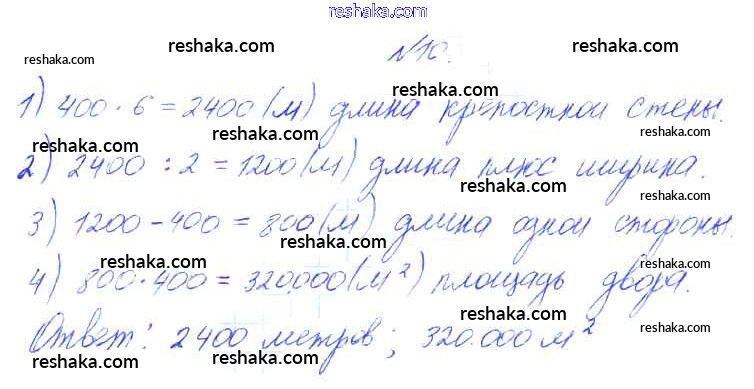 reshaka.com
reshaka.com reshaka.com reshaka.com
№10.
1) 400 · 6 = 2400 (м) длина крепостной стены.
reshaka.com reshaka.com reshaka.com
2) 2400 : 2 = 1200 (м) длина плюс ширина.
reshaka.com reshaka.com reshaka.com
3) 1200 - 400 = 800 (м) длина одной стороны.
reshaka.com reshaka.com reshaka.com
4) 800 · 400 = 320.000 (м²) площадь двора.
reshaka.com reshaka.com reshaka.com
Ответ: 2400 метров; 320.000 м²
reshaka.com reshaka.com reshaka.com